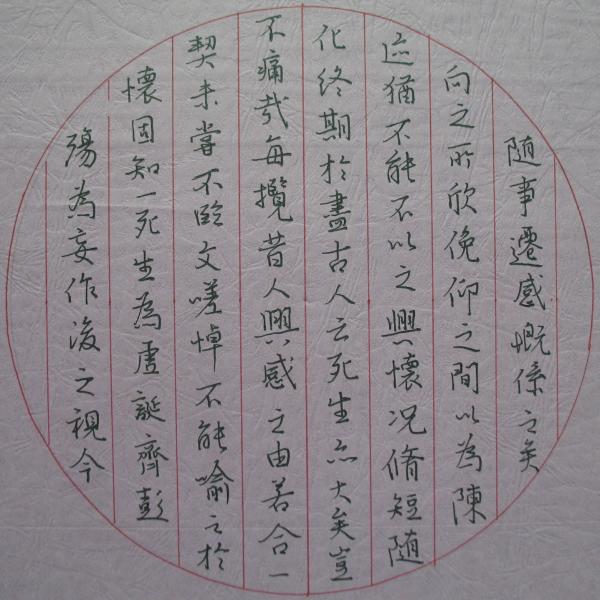 随事遷感慨係之矣
向之所欣俛仰之間以為陳
迹猶不能不以之興懷况脩短随
化終期於盡古人云死生亦大矣豈
不痛哉每攬昔人興感之由若合一
契未嘗不臨文嗟悼不能喻之於
懷固知一死生為虚誕齊彭
殤為妄作後之視今